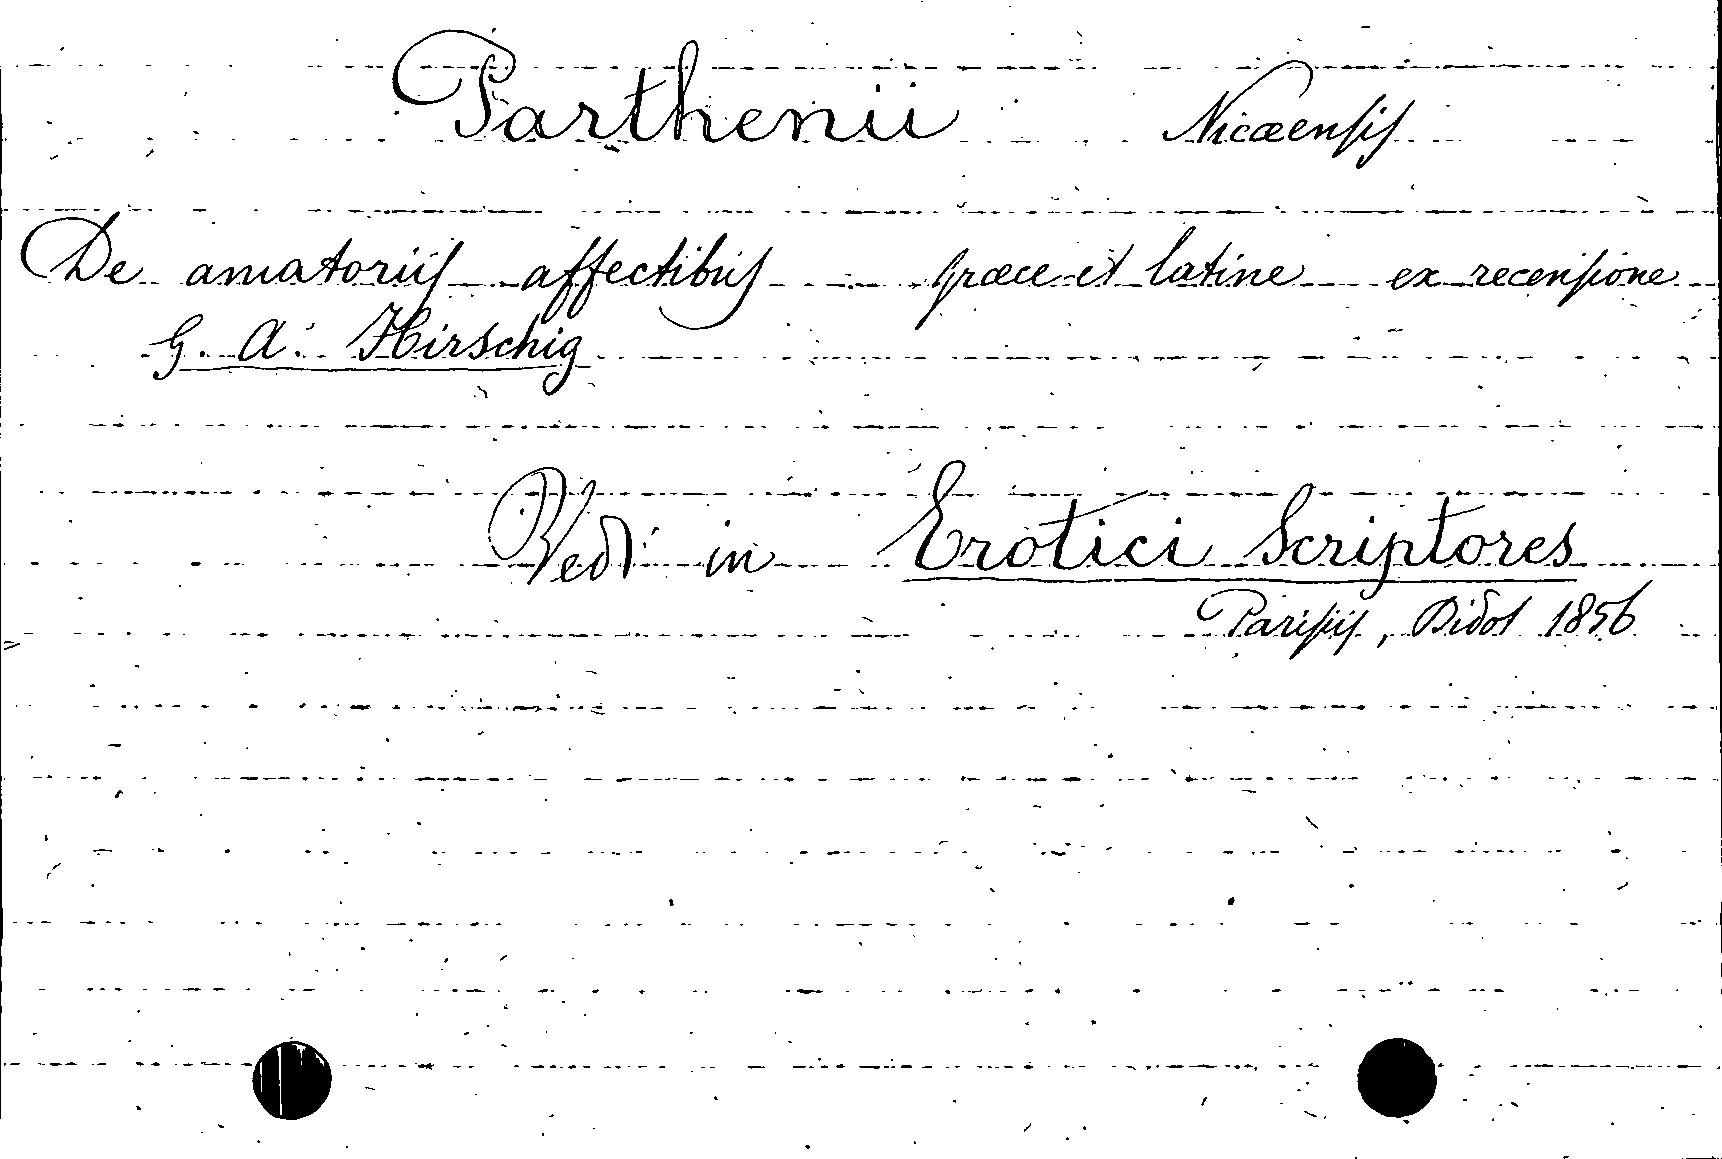 Parthenii Nicæensis
De amatoriis affectibus græce et latine ex recensione
G. A. Hirschig
Vedi in Erotici Scriptores
Parisiis, Didot 1856